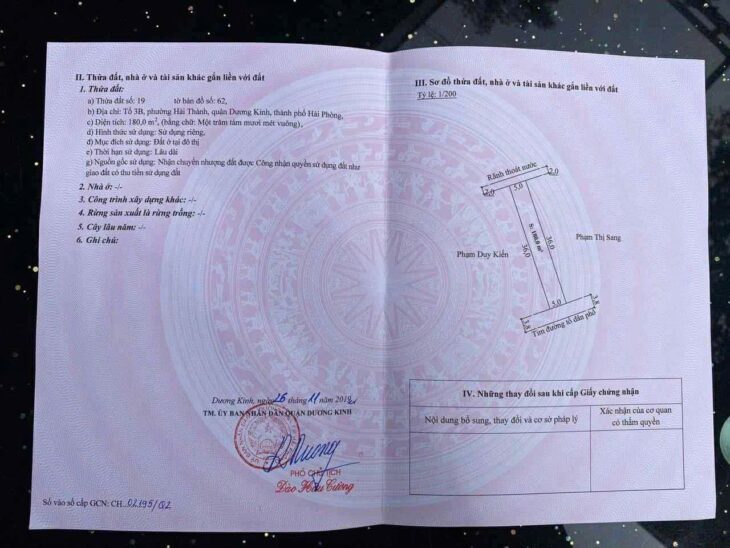 II. Thửa đất, nhà ở và tài sản khác gắn liền với đất
1. Thửa đất:
a) Thửa đất số: 19 tờ bản đồ số: 62,
b) Địa chỉ: Tổ 3B, phường Hải Thành, quận Dương Kinh, thành phố Hải Phòng,
c) Diện tích: 180,0 m², (bằng chữ: Một trăm tám mươi mét vuông),
d) Hình thức sử dụng: Sử dụng riêng,
đ) Mục đích sử dụng: Đất ở tại đô thị
e) Thời hạn sử dụng: Lâu dài
g) Nguồn gốc sử dụng: Nhận chuyển nhượng đất được Công nhận quyền sử dụng đất như
giao đất có thu tiền sử dụng đất
2. Nhà ở: -/-
3. Công trình xây dựng khác: -/-
4. Rừng sản xuất là rừng trồng: -/-
5. Cây lâu năm: -/-
6. Ghi chú:
Dương Kinh, ngày 26 tháng 11 năm 2019
TM. ỦY BAN NHÂN DÂN QUẬN DƯƠNG KINH
PHÓ CHỦ TỊCH
Đào Hữu Cường
Số vào sổ cấp GCN: CH 02195/02
III. Sơ đồ thửa đất, nhà ở và tài sản khác gắn liền với đất
Tỷ lệ: 1/200
Rãnh thoát nước
2,0
2,0
5,0
Phạm Duy Kiên
36,0
S: 180,0 m²
36,0
Phạm Thị Sang
5,0
3,8
3,8
Tim đường tổ dân phố
IV. Những thay đổi sau khi cấp Giấy chứng nhận
Nội dung bổ sung, thay đổi và cơ sở pháp lý
Xác nhận của cơ quan
có thẩm quyền